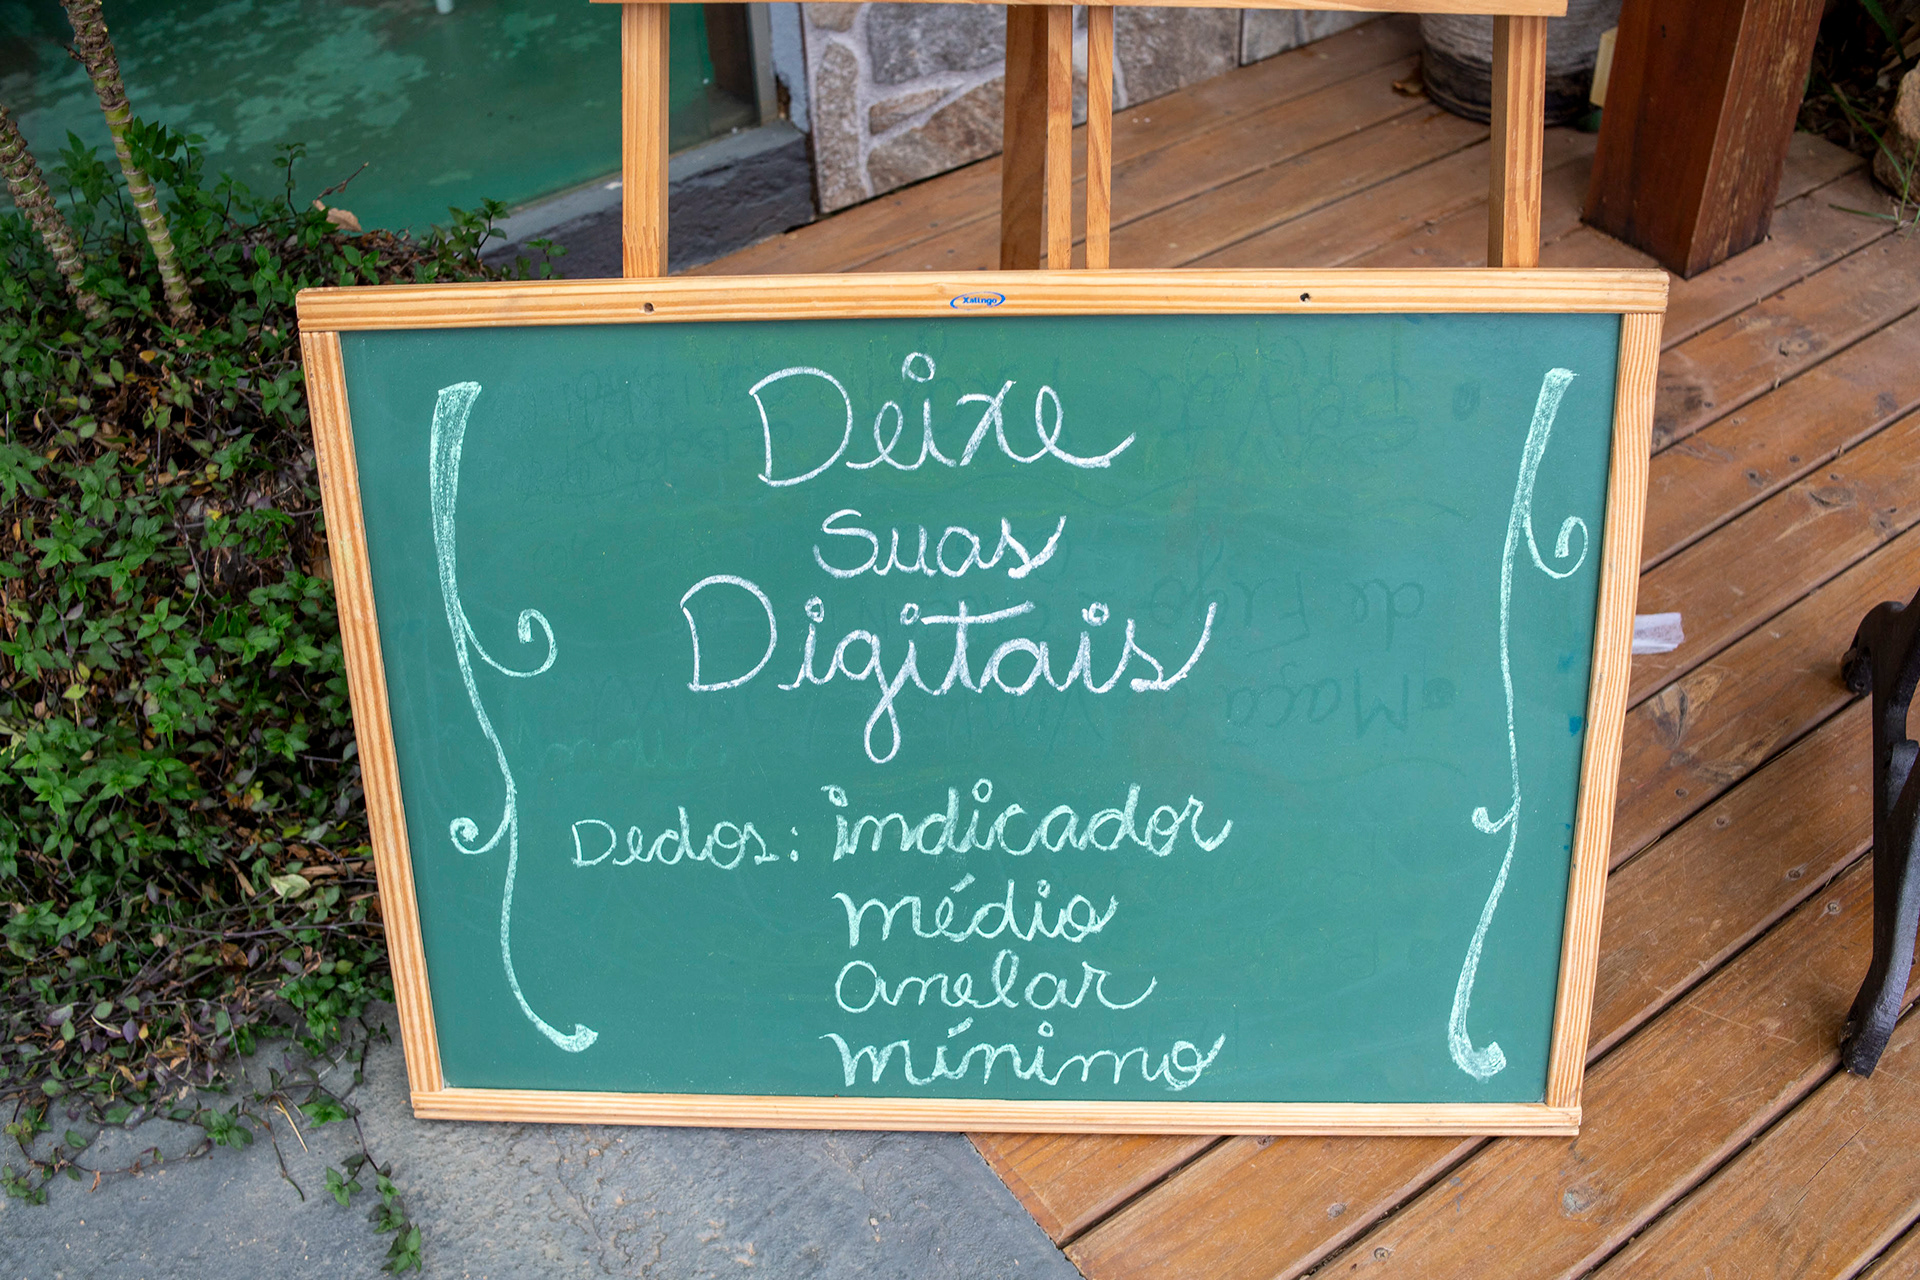 Xalingo
Deixe
suas
Digitais
Dedos: indicador
médio
anelar
mínimo